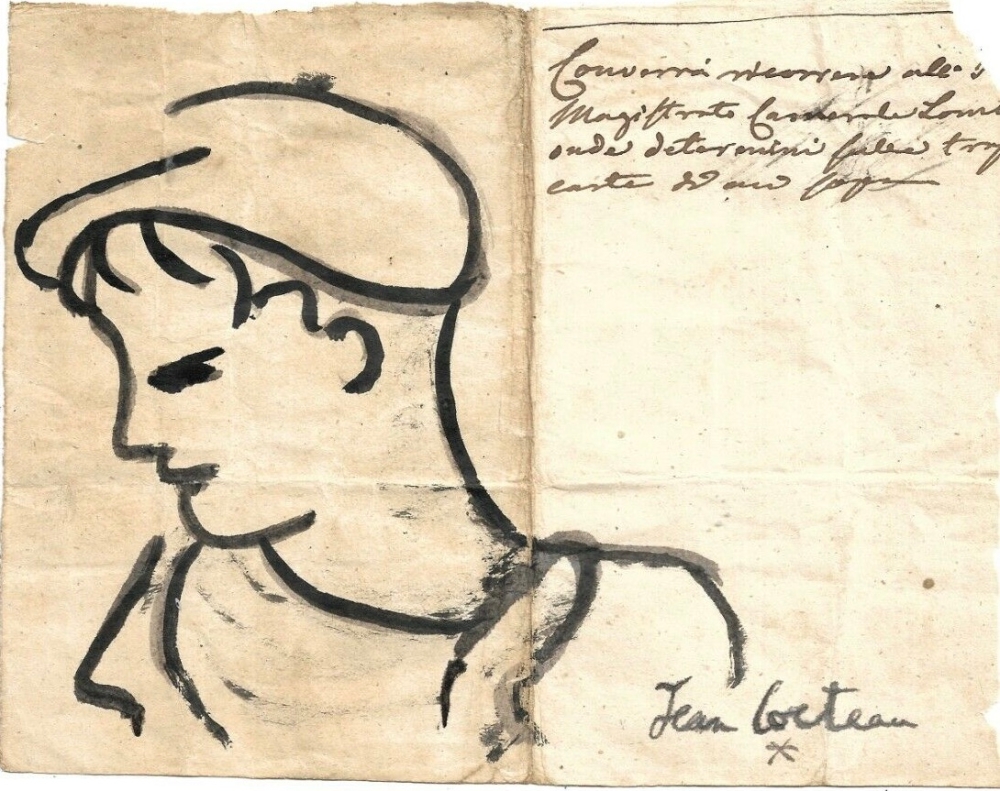 Converrà ricorrere all
Magistrato Camerale
onde determini
carte di un
Jean Cocteau